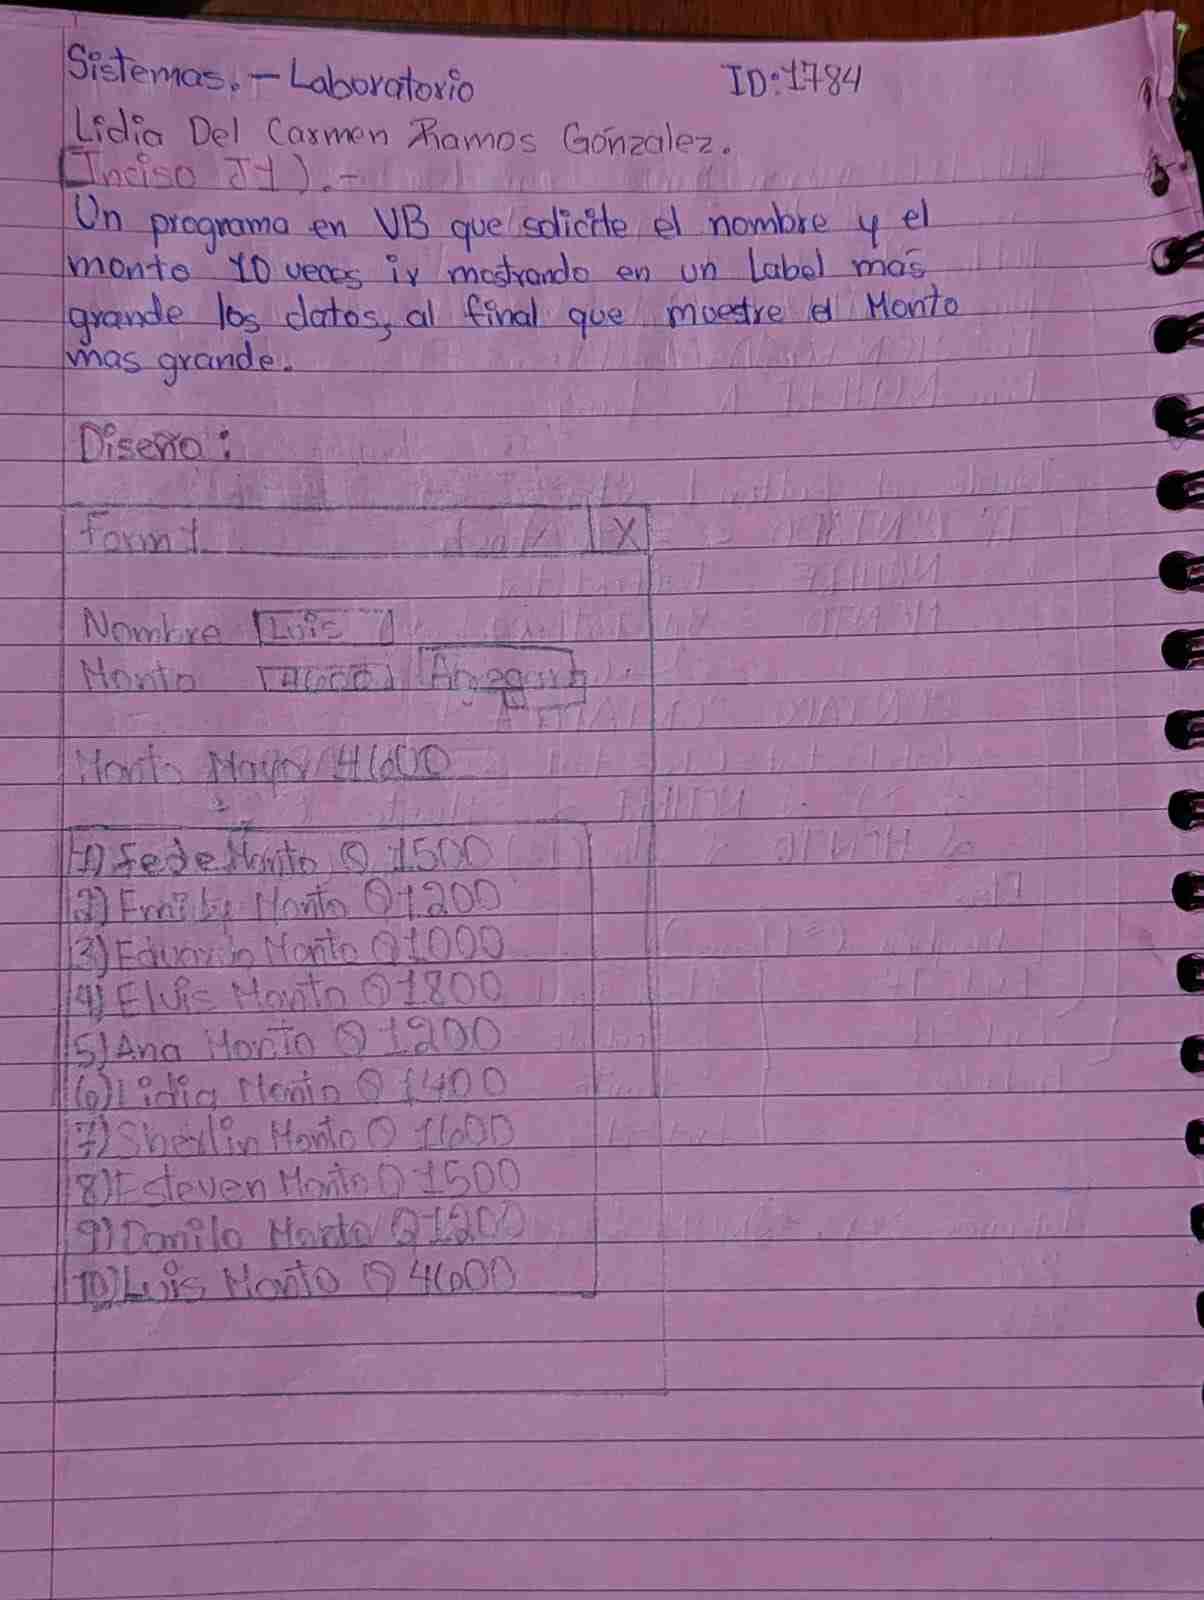 Sistemas. - Laboratorio ID:1784
Lidia Del Carmen Ramos Gónzalez.
(Inciso J1).-
Un programa en VB que solicite el nombre y el
monto 10 veces ir mostrando en un Label mas
grande los datos, al final que muestre el Monto
mas grande.
Diseño:
Form1 X
Nombre Luis
Monto 4600 Agregar
Monto Mayor 4600
1) Fede Monto Q 1500
2) Emily Monto Q 1200
3) Eduardo Monto Q 1000
4) Elvis Monto Q 1800
5) Ana Monto Q 1200
6) Lidia Monto Q 1400
7) Sherlin Monto Q 1600
8) Esteven Monto Q 1500
9) Danilo Monto Q 1200
10) Luis Monto Q 4600